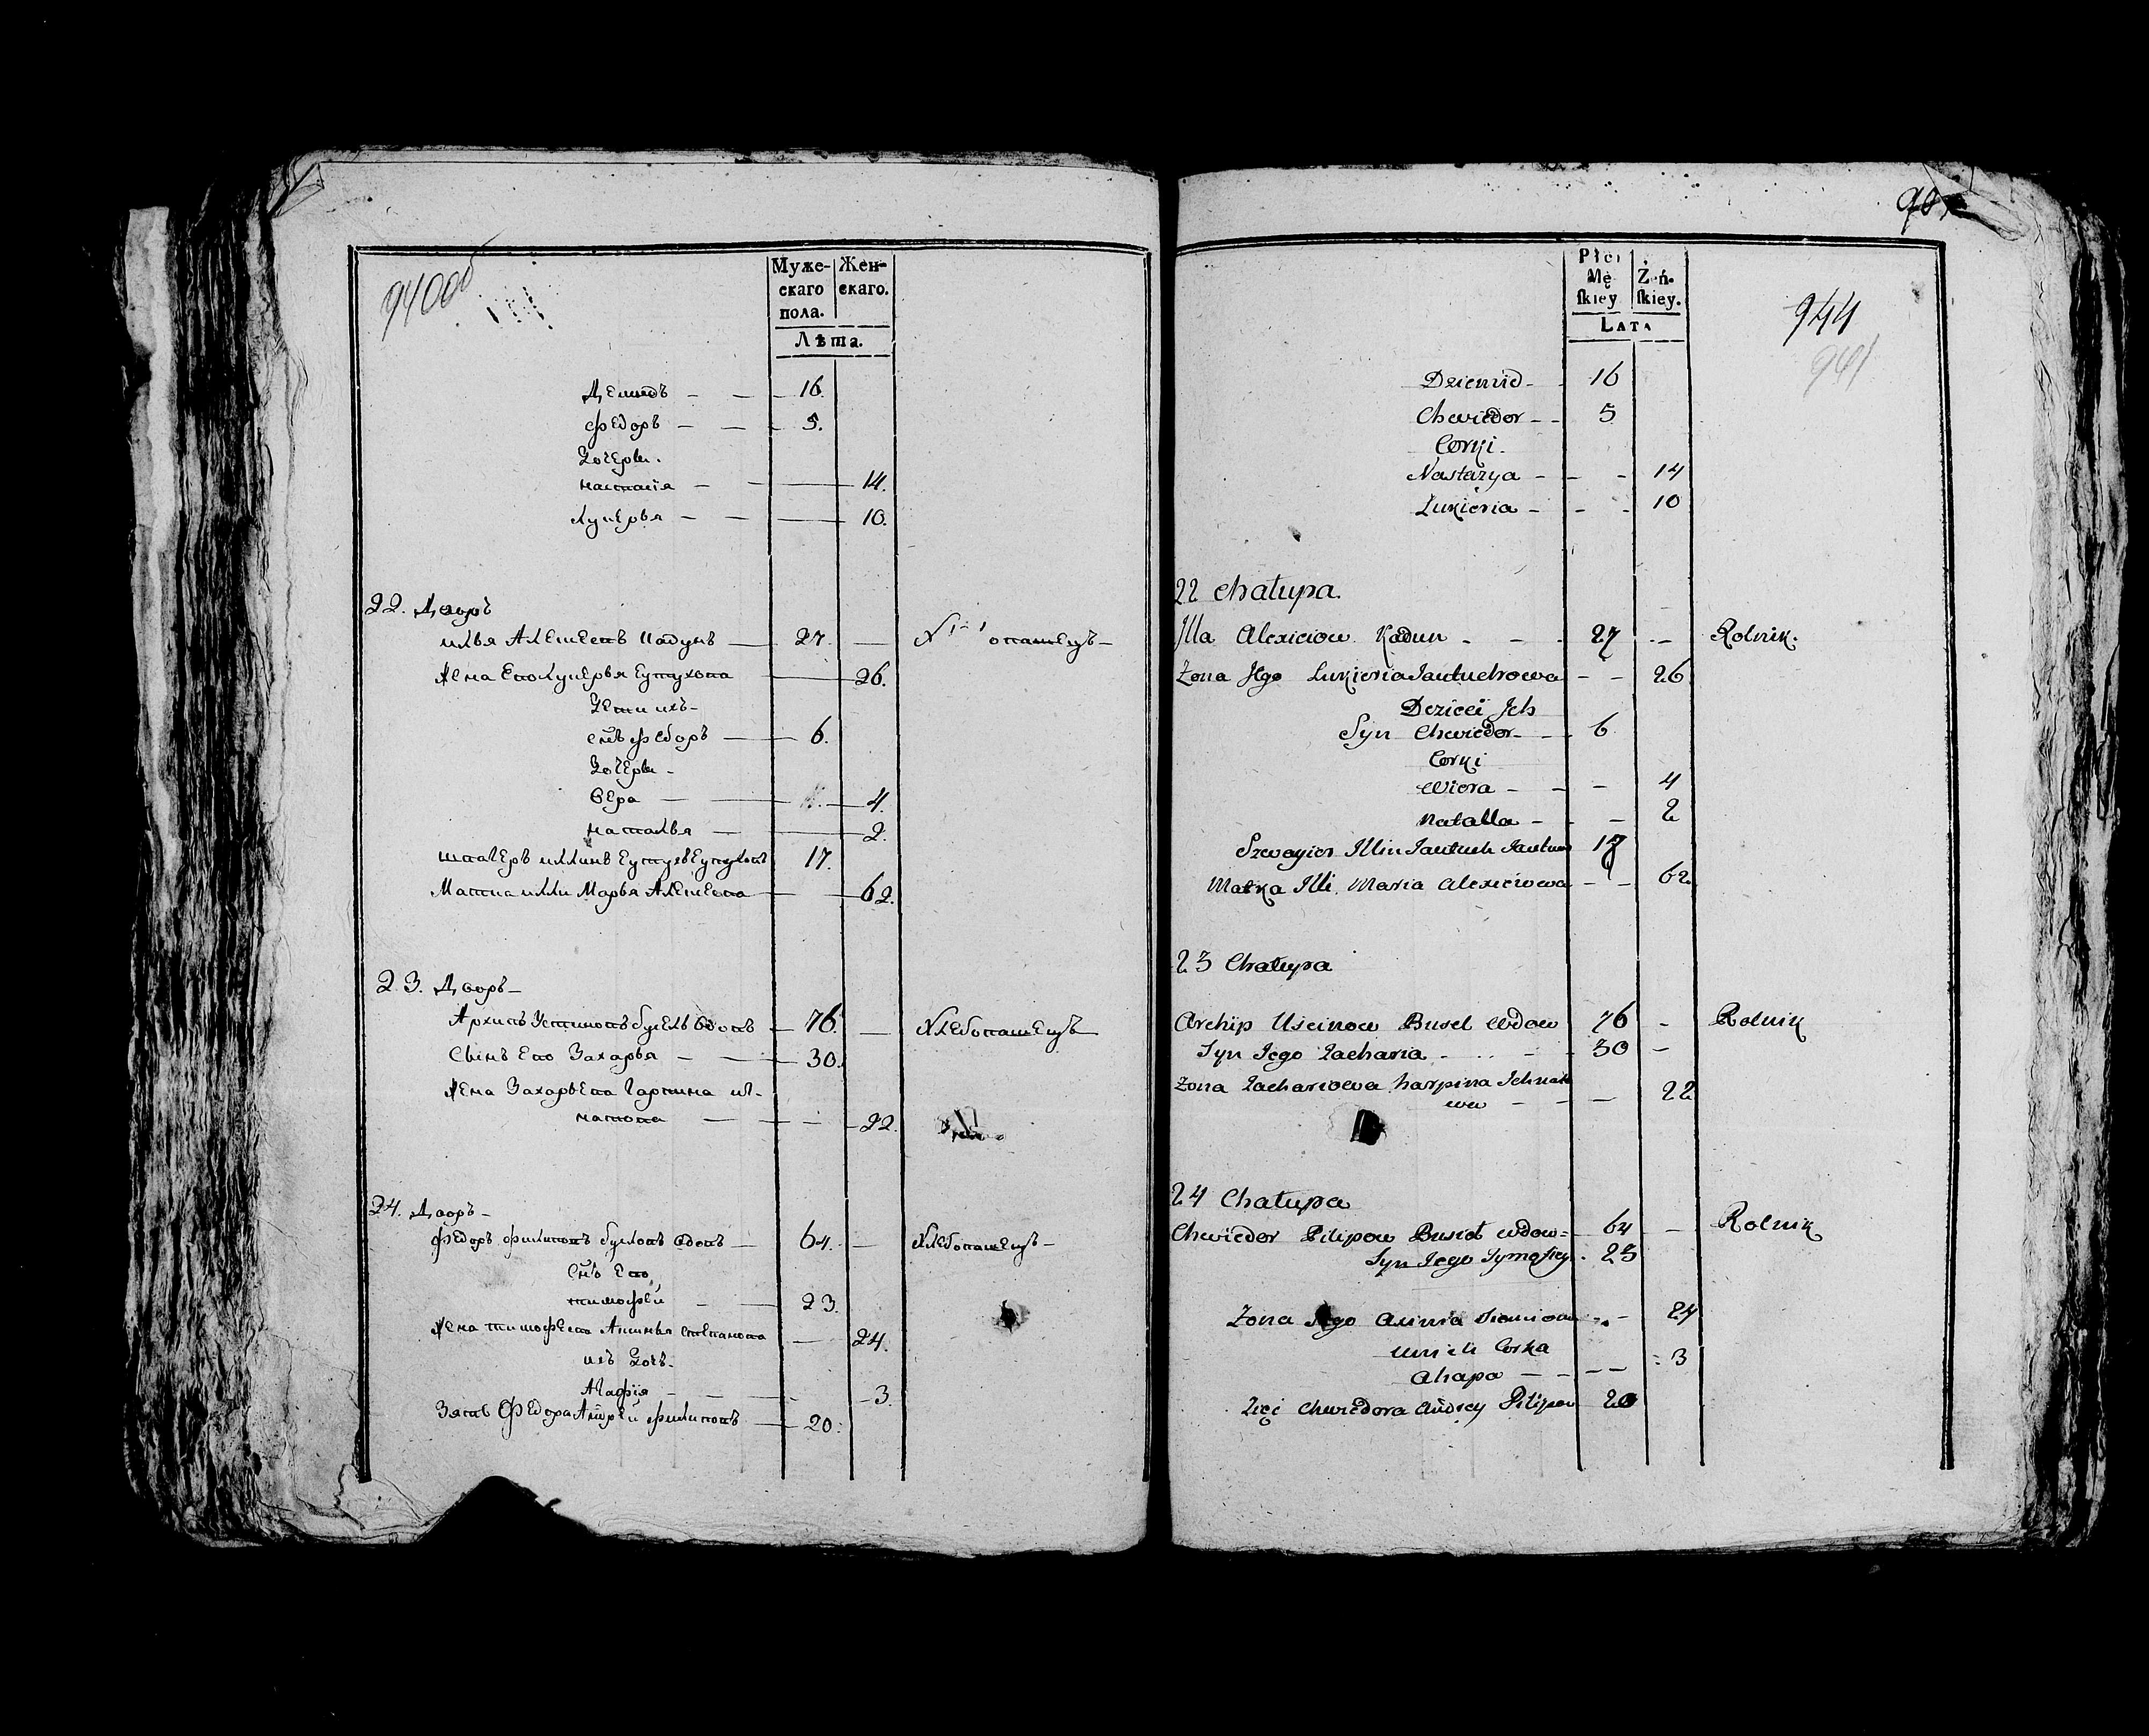 940 об
Муже-
скаго
пола.
Жен-
скаго.
Лѣта.
Демидъ — — — 16.
Федоръ — — — 5.
Дочери.
Настасія — — — 14.
Лукерья — — — 10.
22. Дворъ
Илья Алексеевъ Кадунъ — 27. — пашецъ —
Жена Его Лукерья Евтухова — 26.
Дети ихъ —
Снъ Федоръ — 6.
Дочери —
Вера — 4.
Наталья — 2.
17.
Матка Илли Марья Алексеева — 62.
23. Дворъ —
Архипъ Устиновъ Буселъ Вдовъ — 76. — Хлебопашецъ —
Сынъ Его Захарья — — 30.
Жена Захарьева Гарпина Иг-
натова — — — 22.
24. Дворъ —
Федоръ Филиповъ Вдовъ — 64. — Хлебопашецъ —
Снъ Его
Тимофей — 23.
Жена Тимофеева Агинья Степанова — 24.
ихъ Дочь —
Агафія — — — 3.
Зять Федора Андрей Филиповъ — 20.
Płci
Mę
ſkiey
Żeń-
ſkiey.
Lata
944
941
Dziemid - 16
Chwiedor - - 5
Corki -
Nastazya - - - 14
Łukieria - - - 10
22 Chałupa.
Illa Alexieiow Kadun - - - 27 - - Rolnik.
Zona Jego Łukieria Jautuchowa - - 26
Dzieci Ich
Syn Chwiedor - - 6
Corki
Wiera - - - 4
Natalla - - - 2
Szwagier Illin Jautuch 17
Matka Illi Maria Alexieiowa - - 62
23 Chałupa
Archip Uscinow Busel wdow 76 - Rolnik
Syn Jego Zacharia - - - 30 -
Zona Zachariowa Harpina Ichnat
ewa - - - 22
24 Chałupa
Chwiedor Pilipow Busioł wdow - 64 - Rolnik
Syn Jego Tymofiey - 23
Zona Jego - 24
Corka
Ahapa - - - - 3
Zięć Chwiedora Andrey Pilipow 20